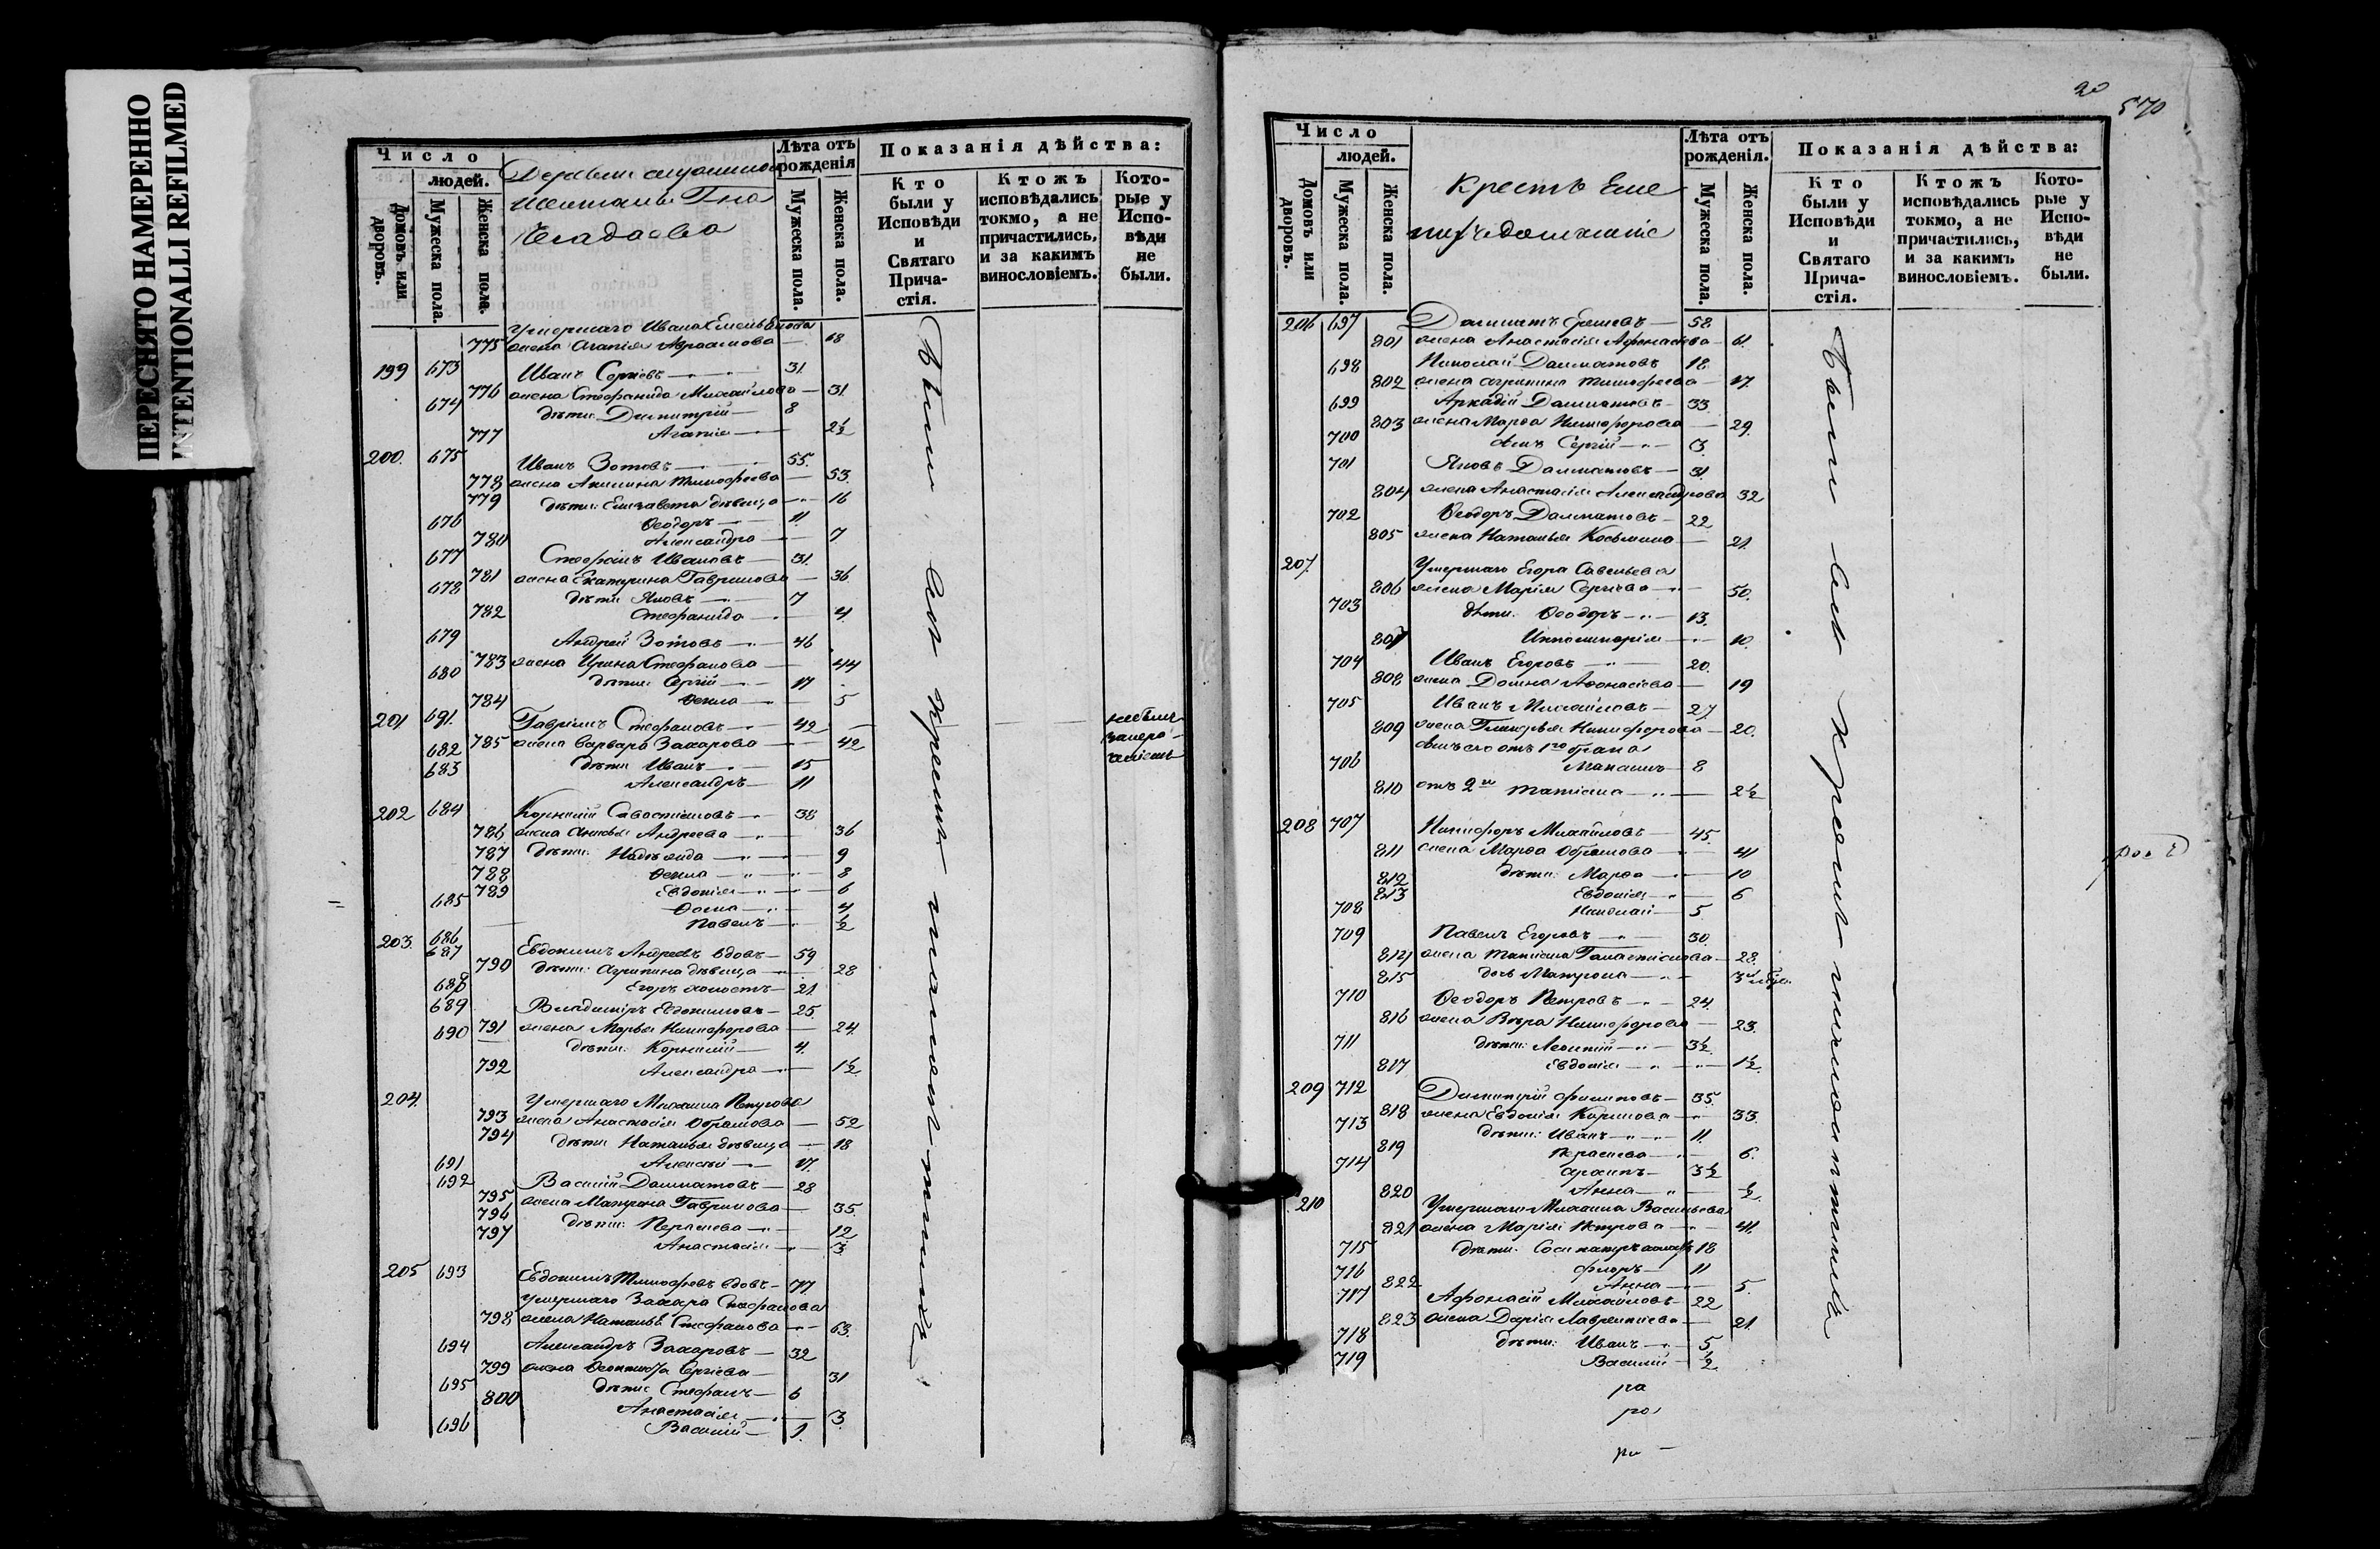 ПЕРЕСНЯТО НАМЕРЕННО
INTENTIONALLI REFILMED
Число
людей.
Домовъ или дворовъ.
Мужеска пола.
Женска пола.
Деревни
Лѣта отъ рожденія
Мужеска пола.
Женска пола.
Показанія дѣйства:
Кто были у Исповѣди и Святаго Причастія.
Ктожъ исповѣдались токмо, а не причастились, и за какимъ винословіемъ.
Которые у Исповѣди не были.
Умершаго Ивана
775 жена Агапія Авраамова — 18
199 673 Иванъ Сергіевъ — 31.
776 жена Стефанида Михайлова — 31.
674 дѣти Димитрій — 8
777 Агапія — 2½
200. 675 Иванъ Зотовъ — 55.
778 жена Акилина Тимофеева — 53.
779 дѣти: Елисавета дѣвица — 16
676 Ѳеодоръ — 11.
780 Александра — 7
677 Стефанъ Ивановъ — 31.
781 жена Екатерина Гаврилова — 36
678 дѣти Яковъ — 7
782 Стефанида — 4.
679 Андрей Зотовъ — 46
783 жена Ирина Стефанова — 44
680 дѣти: Сергій — 17
784 Ѳекла — 5
201 691. Гавріилъ Стефановъ — 42
682 785 жена Варвара Захарова — 42
683 дѣти Иванъ — 15
Александръ — 11
202 684 Корнилій Савостіановъ — 38
786 жена Анна Андреева — 36
787 дѣти: Надежда — 9
788 Ѳекла — 8
789 Евдокія — 6
685 4
Павелъ — ½
203. 686
687 Евдокимъ Андреевъ вдовъ — 59
790 дѣти: Агрипина дѣвица — 28
688 Егоръ холостъ — 21.
689 Владиміръ Евдокимовъ — 25.
690 791 жена Марья Никифорова — 24.
дѣти: Корнилій — 4.
792 Александра — 1½
204. Умершаго Михаила Петрова
793 жена Анастасія Абрамова — 52
794 дѣти Наталья дѣвица — 18
691 Алексѣй — 17.
692 Василій Далматовъ — 28
795 жена Матрона Гаврилова — 35.
796 дѣти: Перасиева — 12
797 Анастасія — 3
205 693 Евдокимъ Тимофеевъ вдовъ — 77.
Умершаго Захара Стефанова
798 жена Наталья Стефанова — 63.
694 Александръ Захаровъ — 32
799 жена Сергіева — 31
695 дѣти: Стефанъ — 6
800 Анастасія — 3.
696 Василій — 1.
20
570
Число
людей.
Домовъ или дворовъ.
Мужеска пола.
Женска пола.
Лѣта отъ рожденія.
Мужеска пола.
Женска пола.
Показанія дѣйства:
Кто были у Исповѣди и Святаго Причастія.
Ктожъ исповѣдались токмо, а не причастились, и за какимъ винословіемъ.
Которые у Исповѣди не были.
206 697 Далматъ — 58
801 жена Анастасія Афонасіева — 61.
698 Николай Далматовъ 18
802 жена Агрипина Тимофеева — 17.
699 Аркадій Далматовъ — 33
803 жена Марѳа Никифорова — 29.
700 сынъ Сергій — 13.
701 Яковъ Далматовъ — 31
804 жена Анастасія Александрова 32
702 Ѳеодоръ Далматовъ — 22
805 жена Наталья Косьмина — 21.
207. Умершаго Егора Савельева
806 жена Марія Сергіева — 50.
703 дѣти: Ѳеодоръ — 13.
807 10.
704 Иванъ Егоровъ — 20.
808 жена Домна Аѳонасіева — 19
705 Иванъ Михайловъ — 27.
809 жена Гликерья Никифорова — 20.
сынъ его отъ 1го брака
706 8
810 отъ 2го Татіана — 2½
208 707 Никифоръ Михайловъ — 45.
811 жена Марѳа Абрамова — 41
812 дѣти: Марѳа — 10
813 Евдокія — 6
708 Николай — 5.
709 Павелъ Егоровъ — 30.
814 жена Татіана — 28.
815 дочь Матрона —
710 Ѳеодоръ Петровъ — 24.
816 жена Вѣра Никифорова — 23.
711 дѣти: Леонтій — 3½
817 Евдокія — 1½
209 712 Димитрій Филиповъ — 35.
818 жена Евдокія Карпова — 33.
713 дѣти: Иванъ — 11.
819 6.
714 3½
820 Анна — ½
210 Умершаго Михаила Васильева
821 жена Марія Петрова — 41.
715 дѣти: Сосипатръ холостъ 18
716 Флоръ — 11
822 Анна — 5.
717 Афонасій Михайловъ — 22
823 жена Дарія Лаврентіева — 21.
718 дѣти: Иванъ — 5
719 Василій — ½
ра
ра